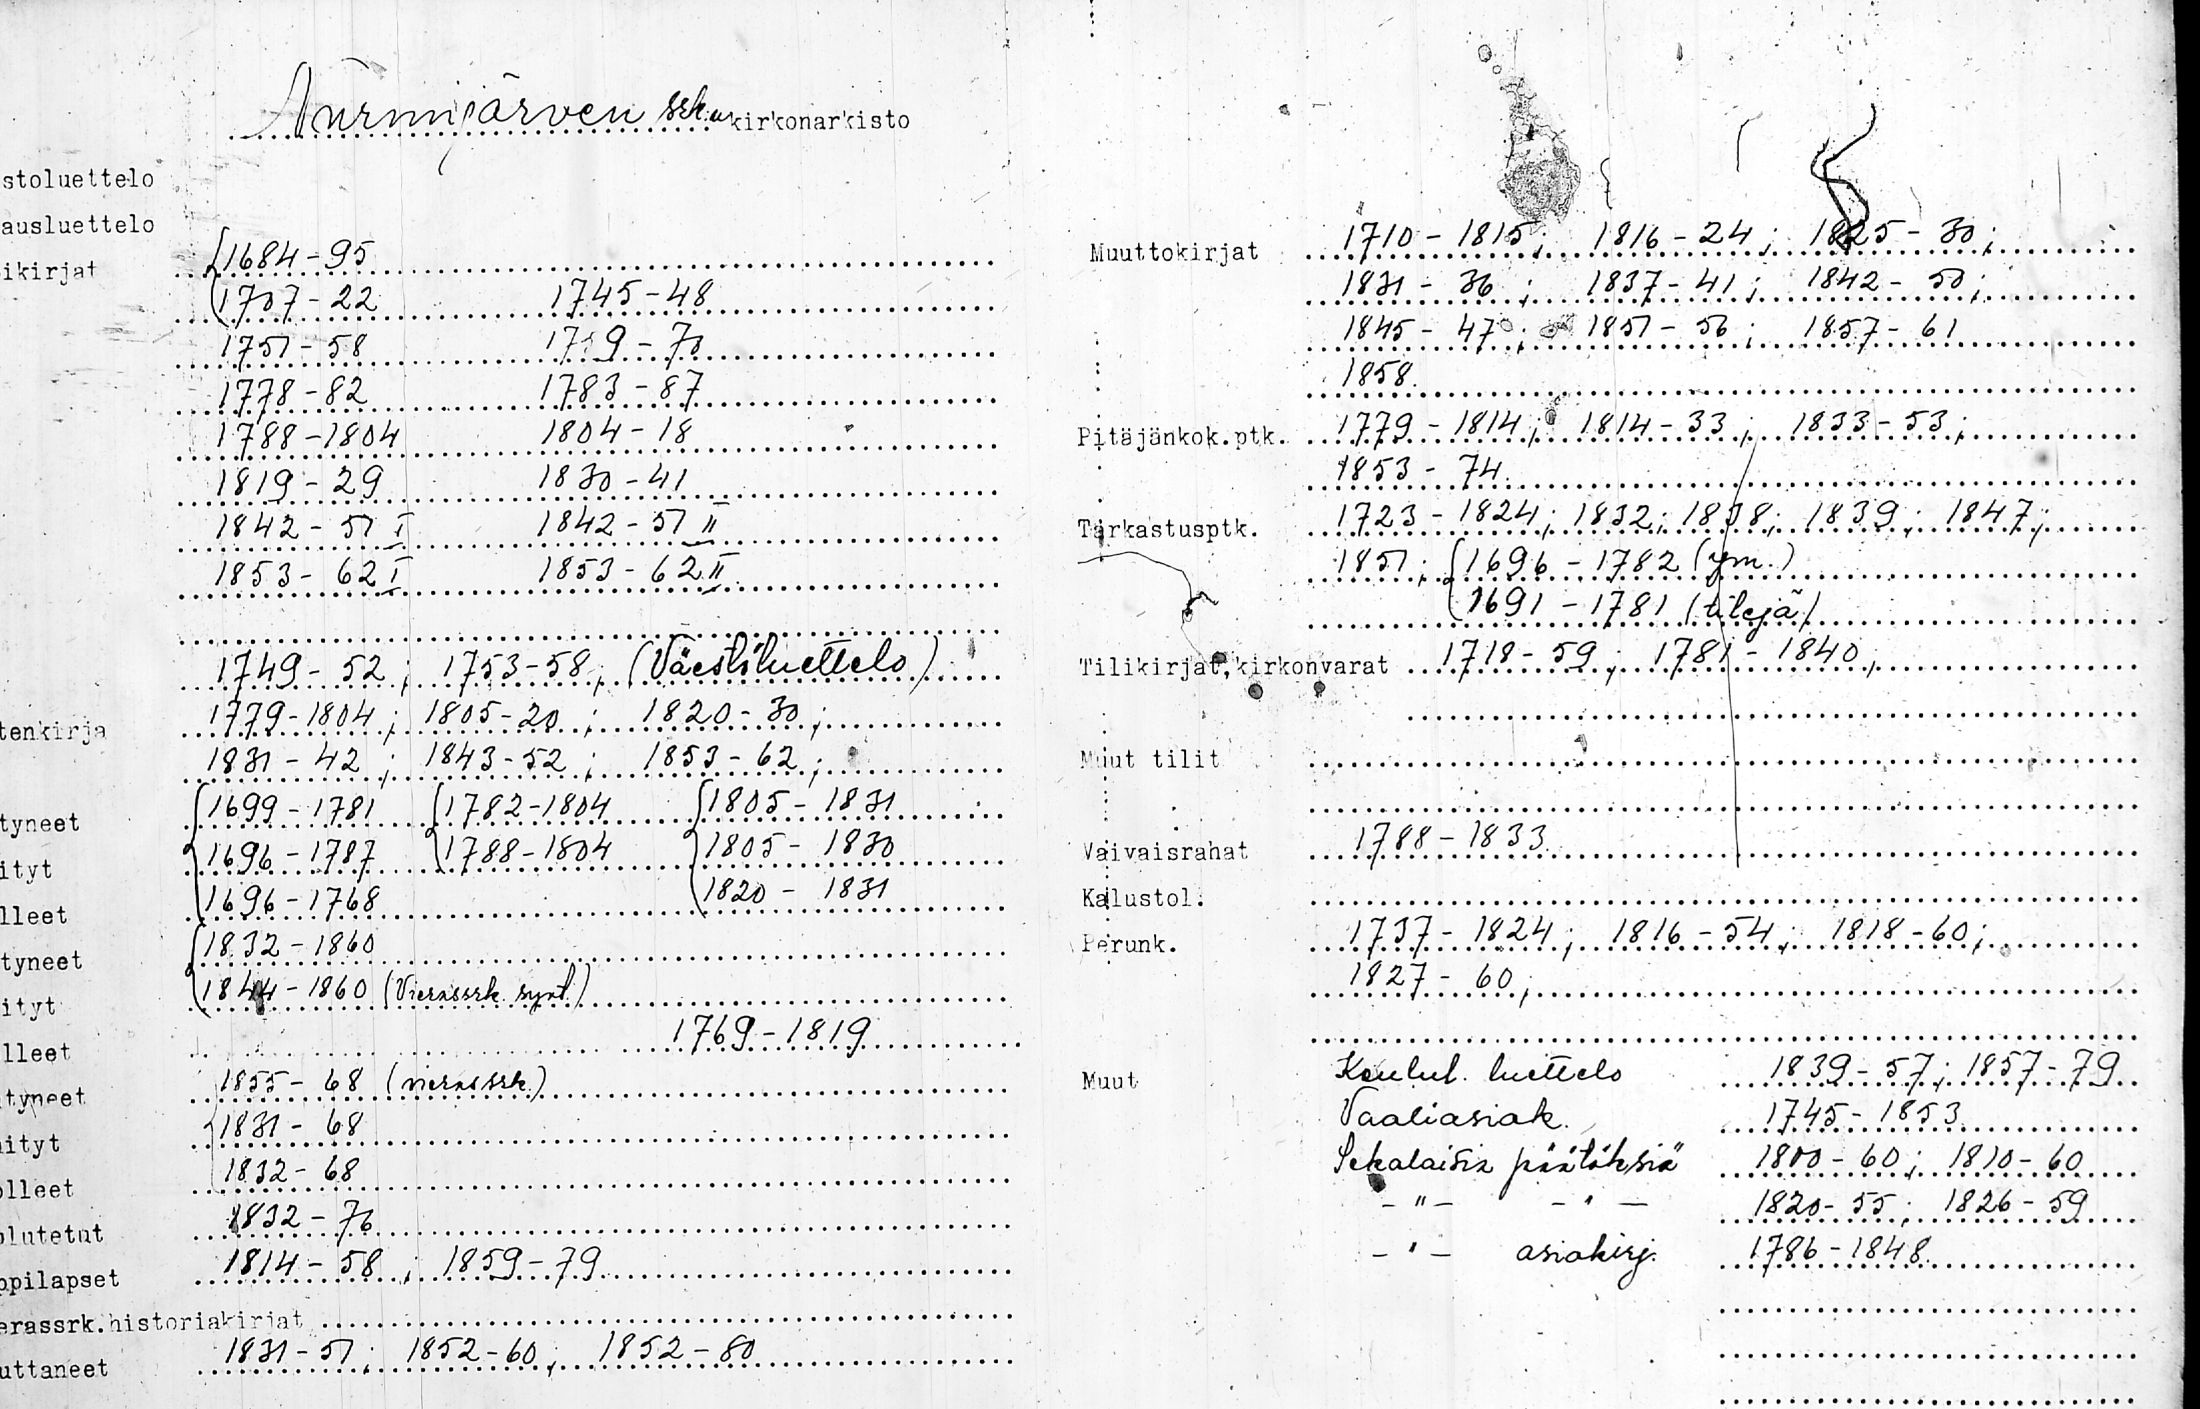 Nurmijärven srk:n kirkonarkisto
stoluettelo
ausluettelo
ikirjat 1684-95
1707-22 1745-48
1751-58 1759-70
1778-82 1783-87
1788-1804 1804-18
1819-29 1830-41
1842-51 I 1842-51 II
1853-62 I 1853-62 II
1749-52; 1753-58; (Väestöluettelo)
tenkirja 1779-1804; 1805-20; 1820-30;
1831-42; 1843-52; 1853-62;
tyneet 1699-1781 1782-1804 1805-1831
ityt 1696-1787 1788-1804 1805-1830
lleet 1696-1768 1820-1831
tyneet 1832-1860
ityt 1844-1860 (Vierassrk. synt.)
lleet 1769-1819
tyneet 1855-68 (vierassrk.)
ityt 1831-68
olleet 1832-68
olutetut 1832-76
ppilapset 1814-58; 1859-79
erassrk.historiakirjat
uttaneet 1831-51; 1852-60; 1852-80
Muuttokirjat 1710-1815; 1816-24; 1825-30;
1831-36; 1837-41; 1842-50;
1845-47; 1851-56; 1857-61
1858
Pitäjänkok.ptk. 1779-1814; 1814-33; 1833-53;
1853-74
Tarkastusptk. 1723-1824; 1832; 1838; 1839; 1847;
1851; 1696-1782 (ym.)
1691-1781 (tilejä)
Tilikirjat, kirkonvarat 1718-59; 1781-1840;
Muut tilit
Vaivaisrahat 1788-1833
Kalustol.
Perunk. 1737-1824; 1816-54; 1818-60;
1827-60;
Muut Kuulut. luettelo 1839-57; 1857-79
Vaaliasiak. 1745-1853
Sekalaisia päätöksiä 1800-60; 1810-60
-"- -"- 1820-55; 1826-59
-"- asiakirj. 1786-1848